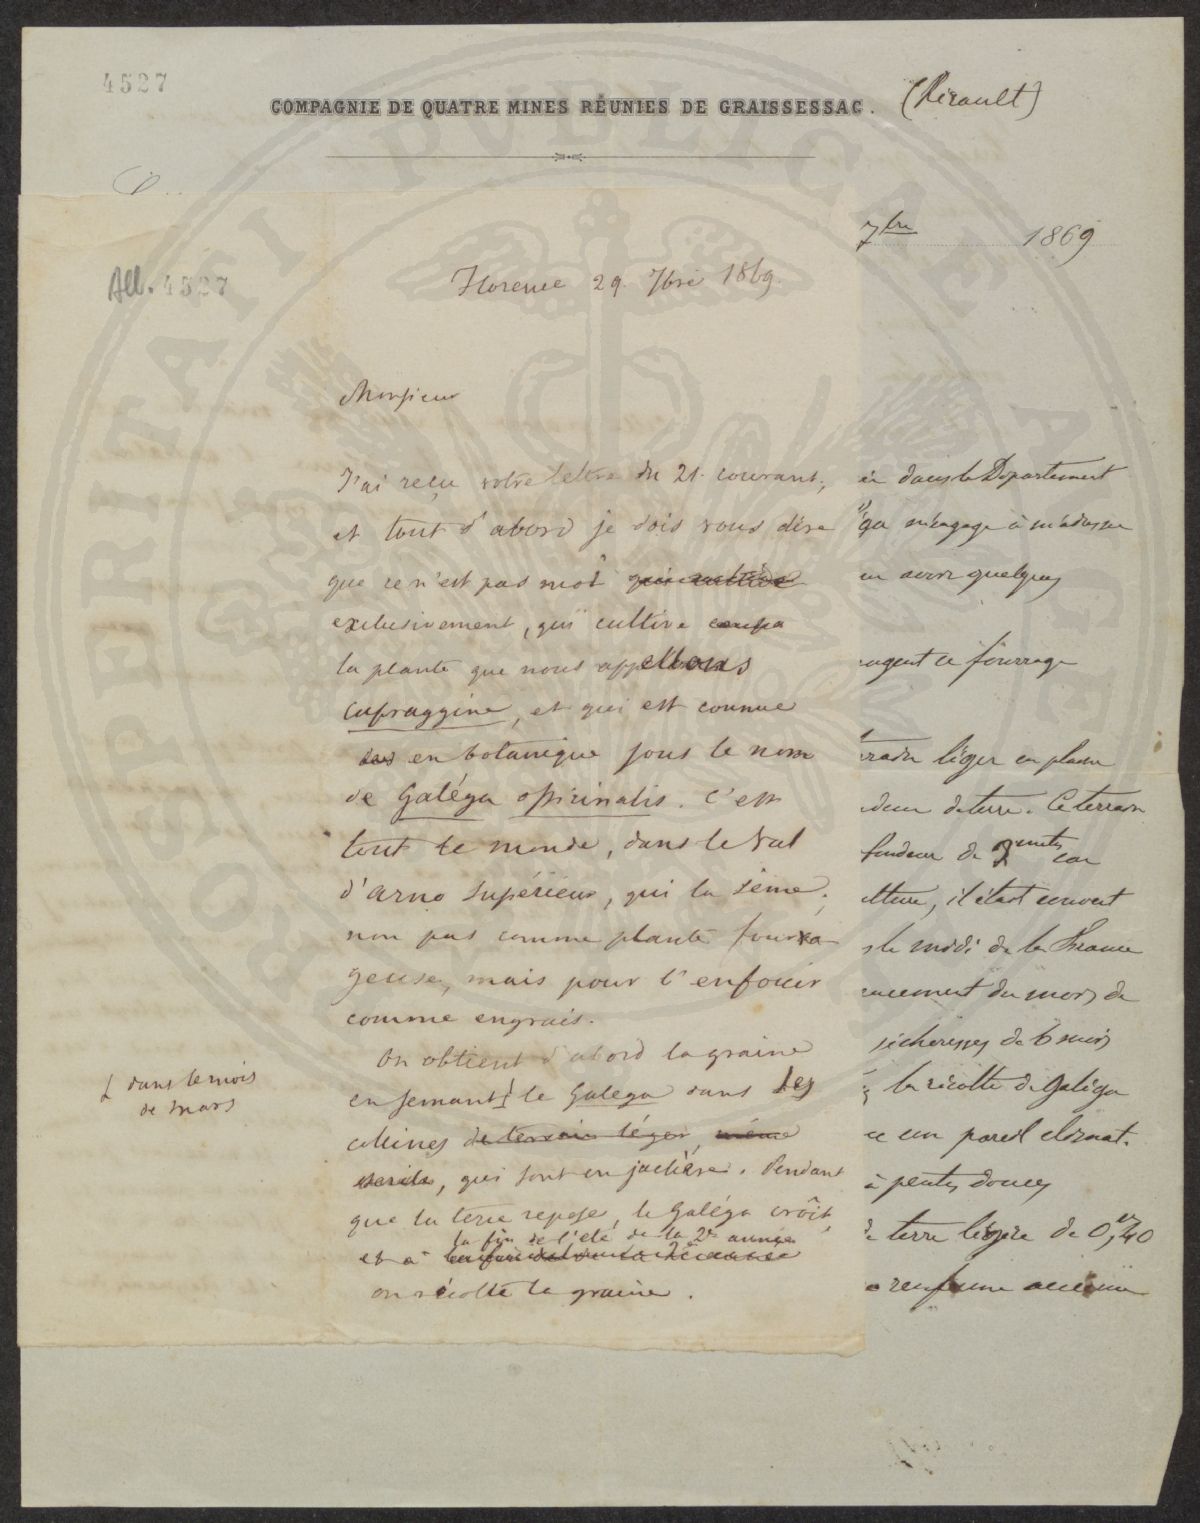 4527
COMPAGNIE DE QUATRE MINES RÉUNIES DE GRAISSESSAC.
(Hérault)
7bre 1869
All. 4527
Florence 29. 7bre 1869.
Monsieur
J'ai reçu votre lettre du 21. courant,
et tout d'abord je dois vous dire
que ce n'est pas moi qui cultive
exclusivement, qui cultive
la plante que nous appellons
capraggine, et qui est connue
en botanique sous le nom
de Galéga officinalis. C'est
tout le monde, dans le Val
d'Arno Supérieur, qui la sème,
non pas comme plante fourra
geuse, mais pour l'enfouir
comme engrais.
On obtient d'abord la graine
en semant le Galega dans les
collines de terrain léger, même
, qui sont en jachère. Pendant
que la terre repose, le Galéga croît,
la fin de l'été de la 2e année
et a
on récolte la graine.
dans le mois
de mars
dans le Département
m'engage à m'adresser
avoir quelques
ce fourrage
léger en plaine
de terre. Ce terrain
fondeur de 2 mets car
il était couvert
le midi de la France
du mois de
sécheresses de 6 mois
la récolte du Galéga
un pareil climat.
à pentes douces
terre légère de 0,m40
renferme aucune